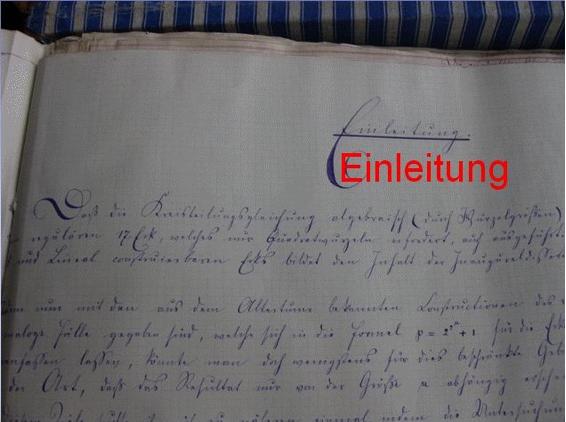 Einleitung.
Einleitung
Daß die Kreisteilungsgleichung algebraisch (durch Wurzelgrößen)
regulären 17 Eck, welches nur Quadratwurzeln erfordert, auch ausgeführt
und Lineal construierbaren Ecks bildet den Inhalt der Inaugural-
nun mit den aus dem Altertume bekannten Constructionen des
Fälle gegeben sind, welche sich in die Formel p = 2ⁿ + 1 für die Eck
lassen, könnte man doch wenigstens für dies beschränkte Gebiet
der Art, daß das Resultat nur von der Größe n abhängig
die Untersuchung